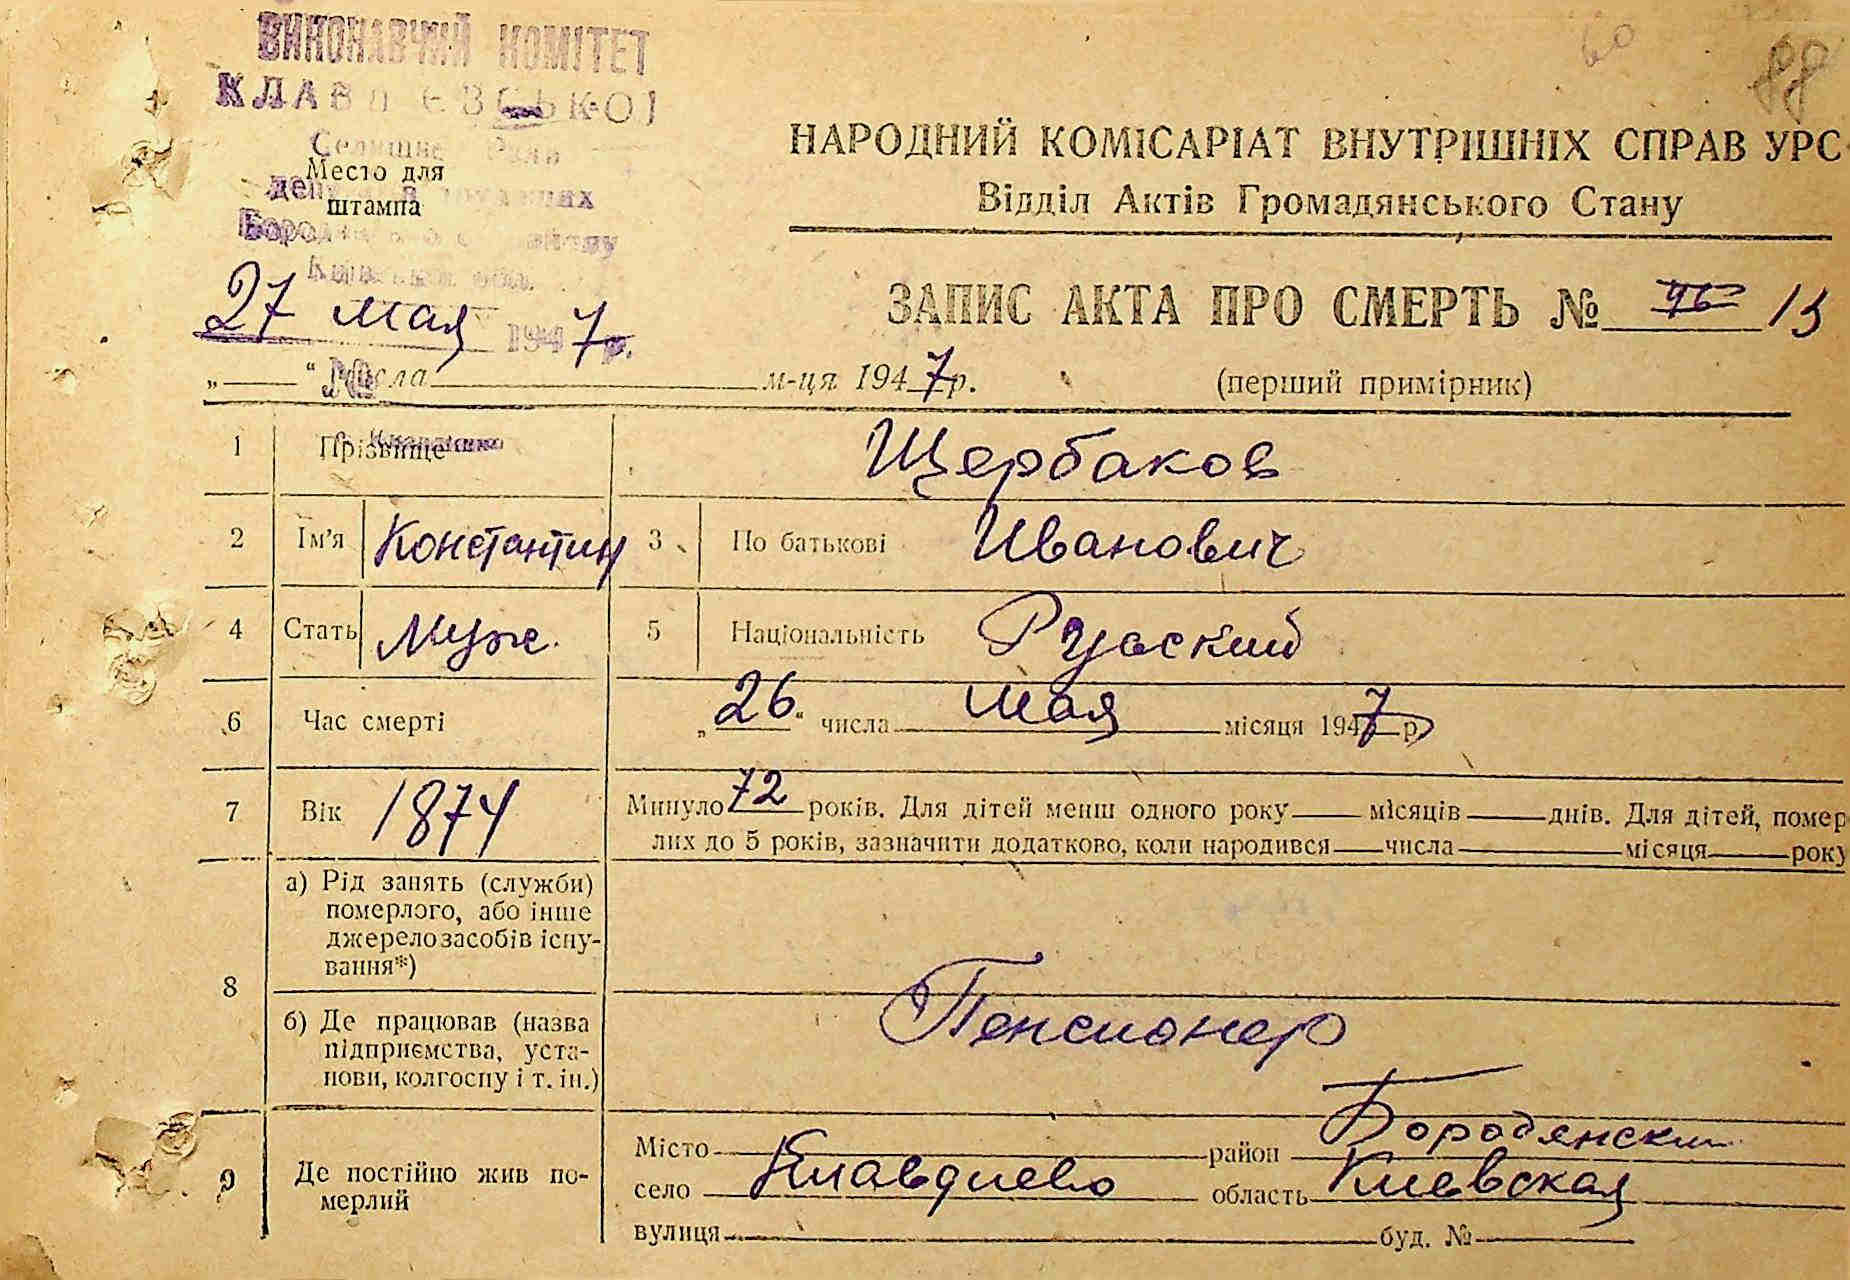 ВИКОНАВЧИЙ КОМІТЕТ
КЛАВДІЄВСЬКОЇ
Место для
штампа
27 мая 1947 р.
60
88
НАРОДНИЙ КОМІСАРІАТ ВНУТРІШНІХ СПРАВ УРС
Відділ Актів Громадянського Стану
ЗАПИС АКТА ПРО СМЕРТЬ № 13
„ “ числа м-ця 1947 р. (перший примірник)
1 Прізвище Щербаков
2 Ім'я Константин 3 По батькові Иванович
4 Стать Муж. 5 Національність Русский
6 Час смерті „26“ числа мая місяця 1947 р.
7 Вік 1874 Минуло 72 років. Для дітей менш одного року місяців днів. Для дітей, помер
лих до 5 років, зазначити додатково, коли народився числа місяця року
8 а) Рід занять (служби)
померлого, або інше
джерело засобів існу-
вання*)
б) Де працював (назва
підприємства, уста-
нови, колгоспу і т. ін.)
Пенсионер
9 Де постійно жив по-
мерлий
Місто район Бородянский
село Клавдиево область Киевская
вулиця буд. №